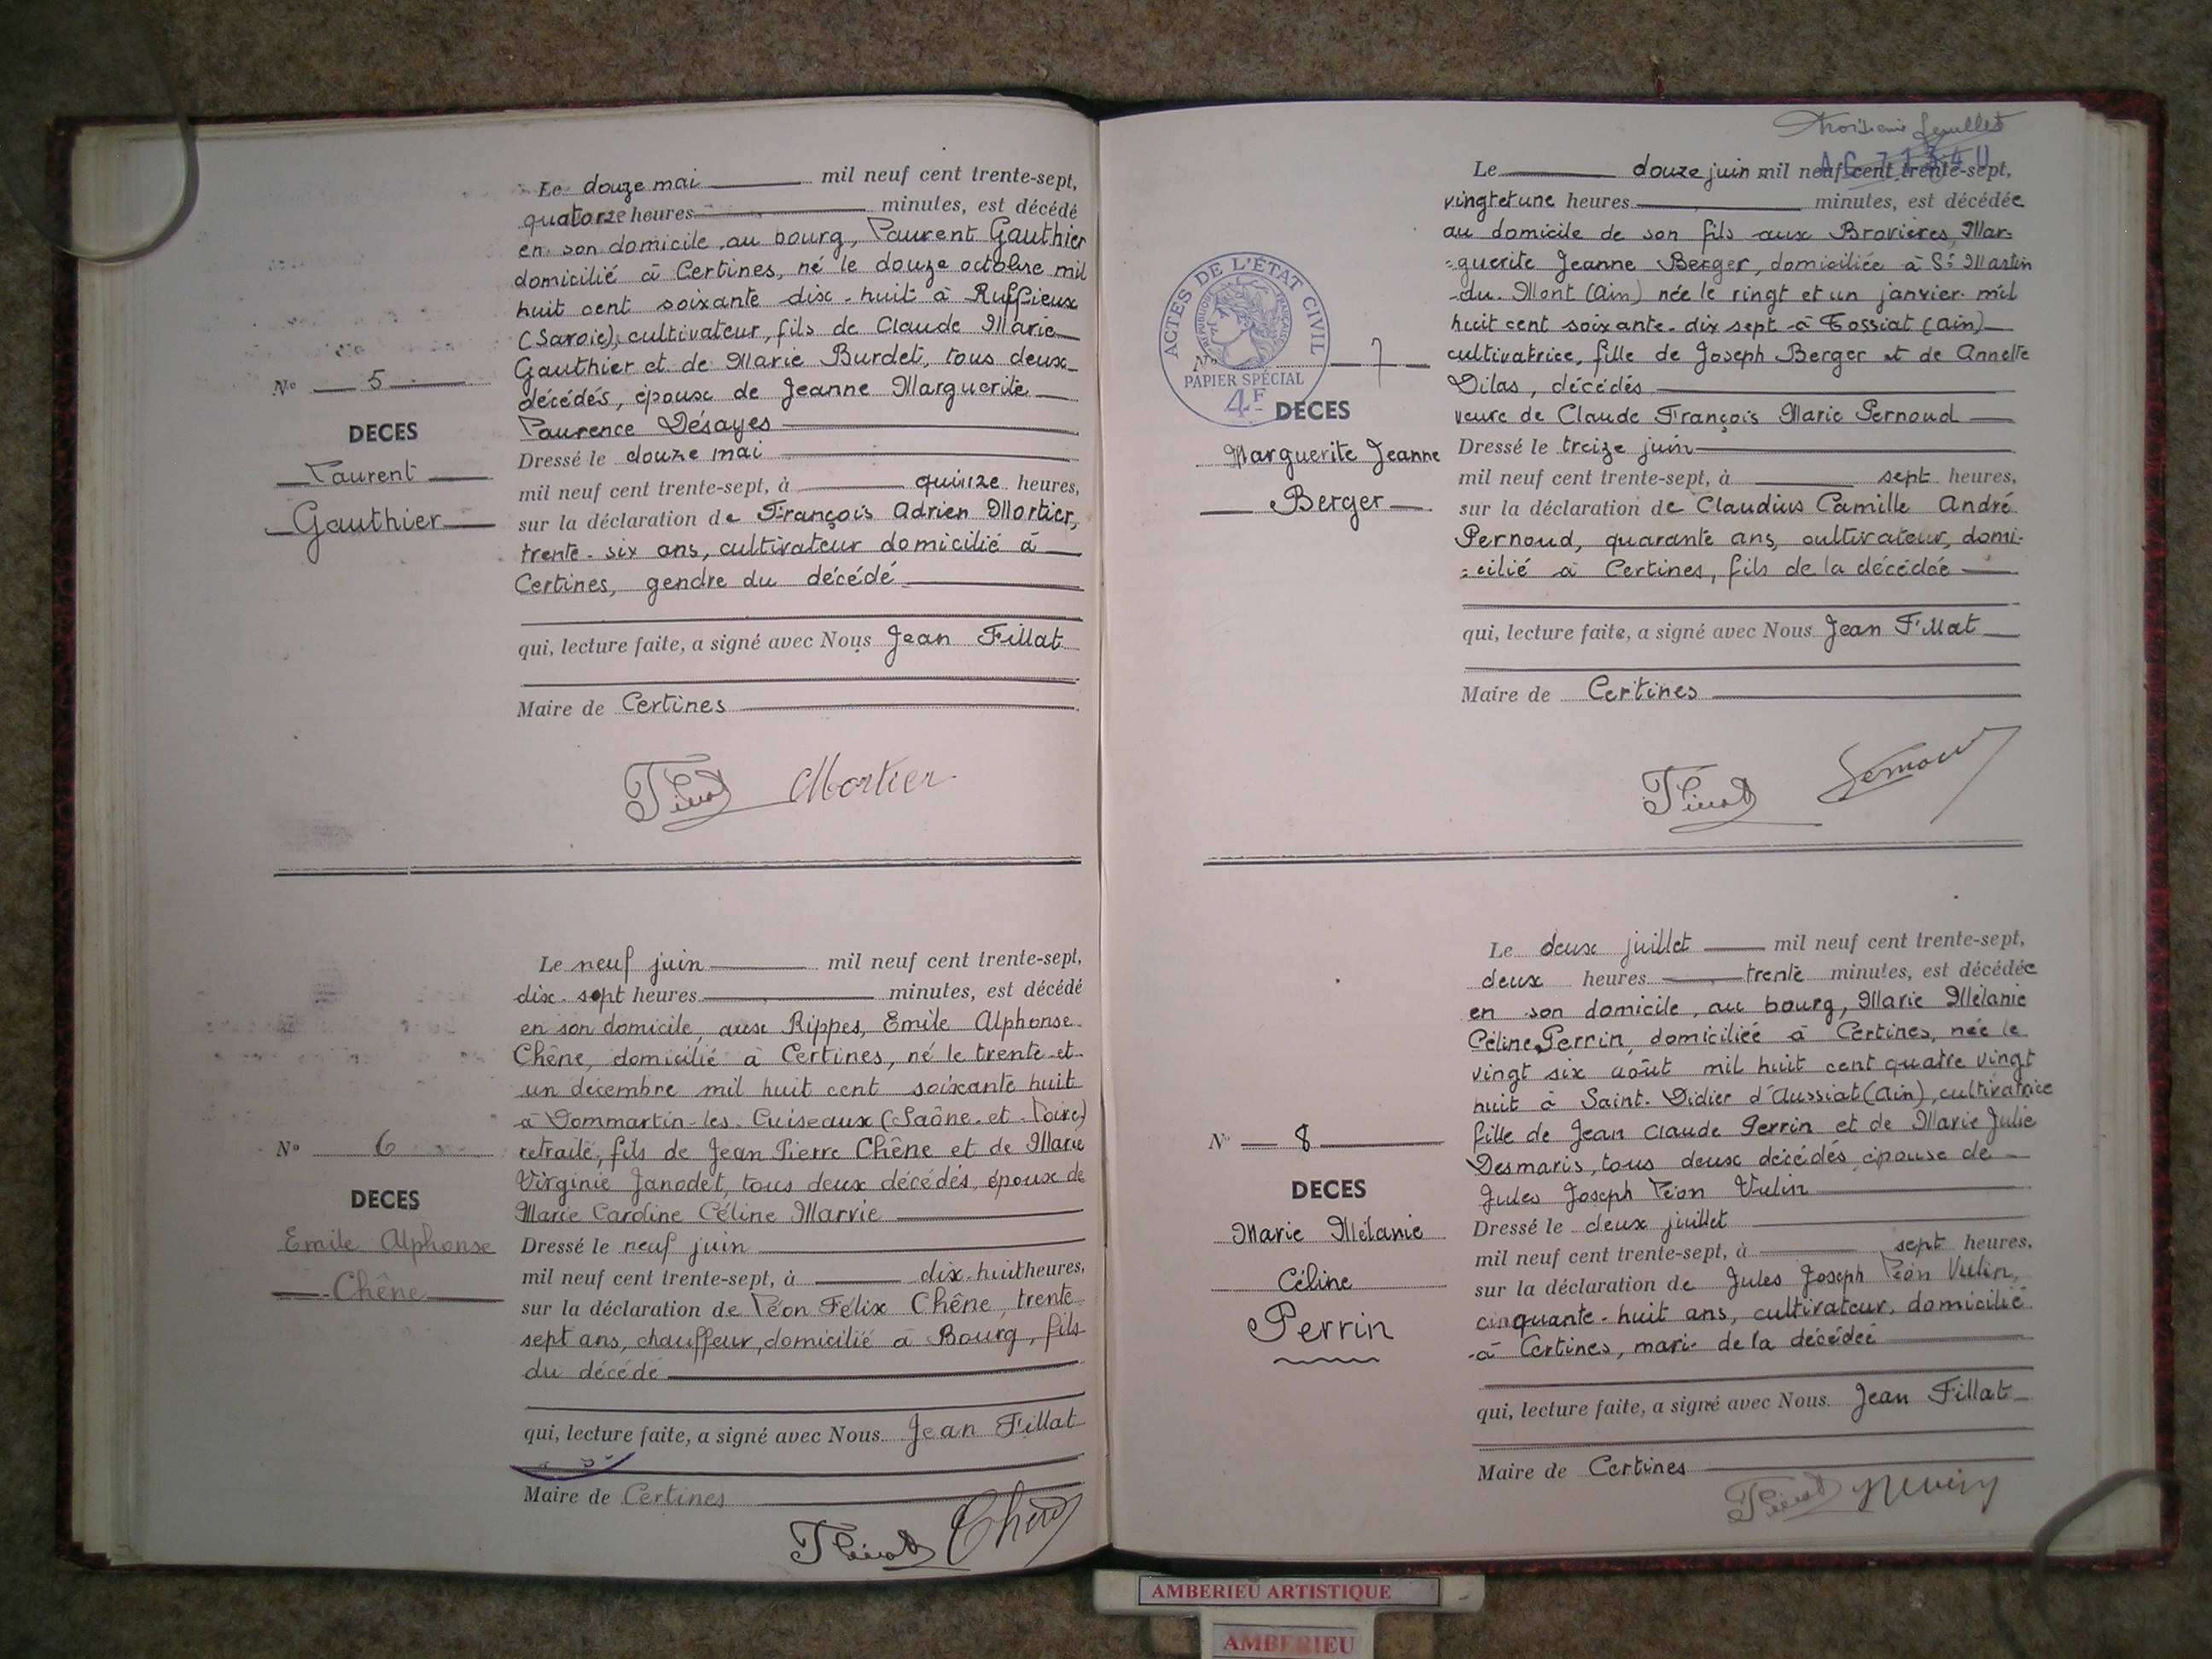 Le douze mai mil neuf cent trente-sept,
quatorze heures minutes, est décédé
en son domicile au bourg, Laurent Gauthier
domicilié à Certines, né le douze octobre mil
huit cent soixante dix-huit à Ruffieux
(Savoie), cultivateur, fils de Claude Marie
Gauthier et de Marie Burdet, tous deux
décédés, époux de Jeanne Marguerite
Laurence Désayes
Dressé le douze mai
mil neuf cent trente-sept, à quinze heures,
sur la déclaration de François Adrien Mortier,
trente-six ans, cultivateur domicilié à
Certines, gendre du décédé
qui, lecture faite, a signé avec Nous Jean Fillat
Maire de Certines
Mortier
N° 5
DECES
Laurent
Gauthier
Le neuf juin mil neuf cent trente-sept,
dix-sept heures minutes, est décédé
en son domicile aux Rippes, Emile Alphonse
Chêne, domicilié à Certines, né le trente-et-
un décembre mil huit cent soixante huit
à Dommartin-les-Cuiseaux (Saône-et-Loire)
retraité, fils de Jean Pierre Chêne et de Marie
Virginie Janodet, tous deux décédés, époux de
Marie Caroline Céline Marvie
Dressé le neuf juin
mil neuf cent trente-sept, à dix-huit heures,
sur la déclaration de Léon Félix Chêne, trente
sept ans, chauffeur, domicilié à Bourg, fils
du décédé
qui, lecture faite, a signé avec Nous Jean Fillat
Maire de Certines
Chêne
N° 6
DECES
Emile Alphonse
Chêne
troisième feuillet
Le douze juin mil neuf cent trente-sept,
vingt et une heures minutes, est décédée
au domicile de son fils aux Brovières, Mar-
guerite Jeanne Berger, domiciliée à St Martin
-du-Mont (Ain) née le vingt et un janvier mil
huit cent soixante-dix sept à Tossiat (Ain)
cultivatrice, fille de Joseph Berger et de Annette
Dilas, décédés
veuve de Claude François Marie Pernoud
Dressé le treize juin
mil neuf cent trente-sept, à sept heures,
sur la déclaration de Claudius Camille André
Pernoud, quarante ans, cultivateur, domi-
cilié à Certines, fils de la décédée
qui, lecture faite, a signé avec Nous Jean Fillat
Maire de Certines
ACTES DE L'ÉTAT CIVIL
RÉPUBLIQUE FRANÇAISE
PAPIER SPÉCIAL
4F
N° 7
DECES
Marguerite Jeanne
Berger
Le deux juillet mil neuf cent trente-sept,
deux heures trente minutes, est décédée
en son domicile, au bourg, Marie Mélanie
Céline Perrin, domiciliée à Certines, née le
vingt six août mil huit cent quatre vingt
huit à Saint-Didier d'Aussiat (Ain), cultivatrice
fille de Jean Claude Perrin et de Marie Julie
Desmaris, tous deux décédés, épouse de
Jules Joseph Léon Vulin
Dressé le deux juillet
mil neuf cent trente-sept, à sept heures,
sur la déclaration de Jules Joseph Léon Vulin,
cinquante-huit ans, cultivateur, domicilié
à Certines, mari de la décédée
qui, lecture faite, a signé avec Nous Jean Fillat
Maire de Certines
N° 8
DECES
Marie Mélanie
Céline
Perrin
AMBERIEU ARTISTIQUE
AMBERIEU